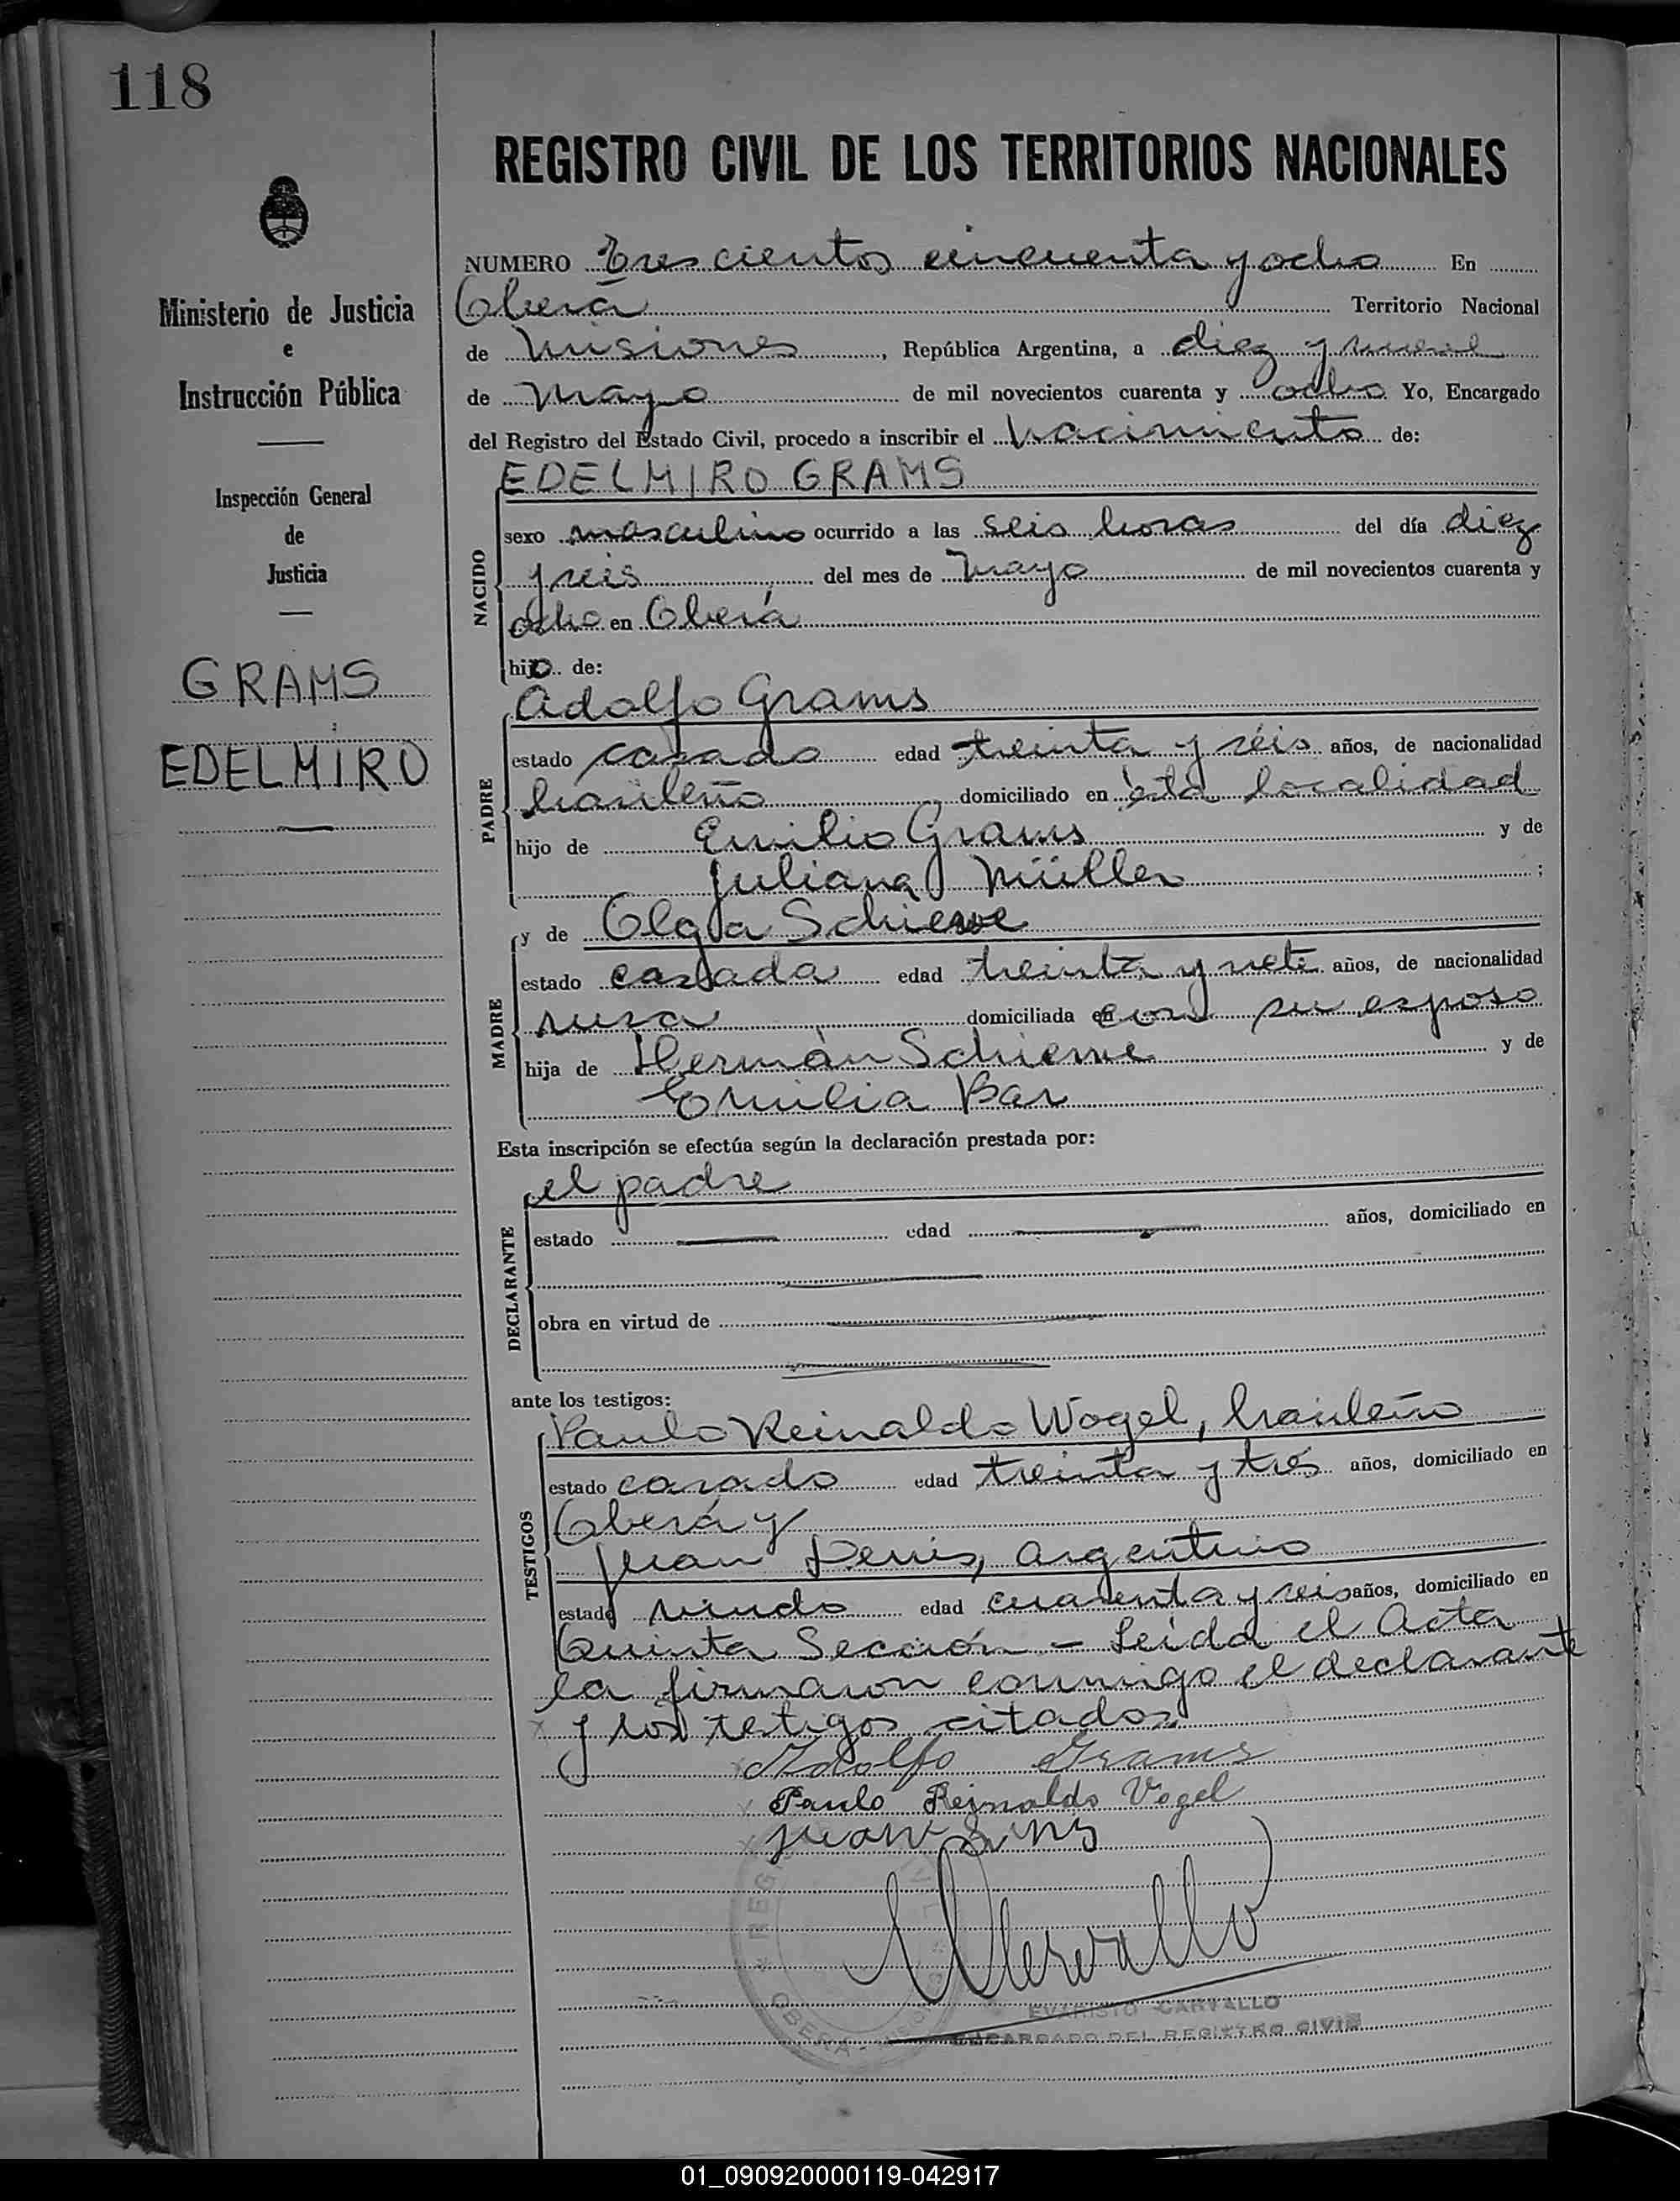 118
REGISTRO CIVIL DE LOS TERRITORIOS NACIONALES
Ministerio de Justicia
e
Instrucción Pública
Inspección General
de
Justicia
GRAMS
EDELMIRO
NUMERO Trescientos cincuenta y ocho En
Oberá Territorio Nacional
de Misiones, República Argentina, a diez y nueve
de Mayo de mil novecientos cuarenta y ocho Yo, Encargado
del Registro del Estado Civil, procedo a inscribir el nacimiento de:
EDELMIRO GRAMS
NACIDO
sexo masculino ocurrido a las seis horas del día diez
y seis del mes de mayo de mil novecientos cuarenta y
ocho en Oberá
hijo de:
Adolfo Grams
PADRE
estado casado edad treinta y séis años, de nacionalidad
brasileño, domiciliado en ésta localidad
hijo de Emilio Grams y de
Juliana Müller;
y de Olga Schiewe
MADRE
estado casada edad treinta y siete años, de nacionalidad
rusa domiciliada en con su esposo
hija de Hermán Schiewe y de
Emilia Bar
Esta inscripción se efectúa según la declaración prestada por:
el padre
DECLARANTE
estado edad años, domiciliado en
obra en virtud de
ante los testigos:
Paulo Reinaldo Wogel, brasileño
TESTIGOS
estado casado edad treinta y tres años, domiciliado en
Oberá y
Juan Denis, argentino
estado viudo edad cuarenta y seis años, domiciliado en
Quinta Sección - Leída el Acta
la firmaron conmigo el declarante
y los testigos citados.
Adolfo Grams
Paulo Reinaldo Vogel
Juan
EVARISTO CARVALLO
ENCARGADO DEL REGISTRO CIVIL
01_090920000119-042917